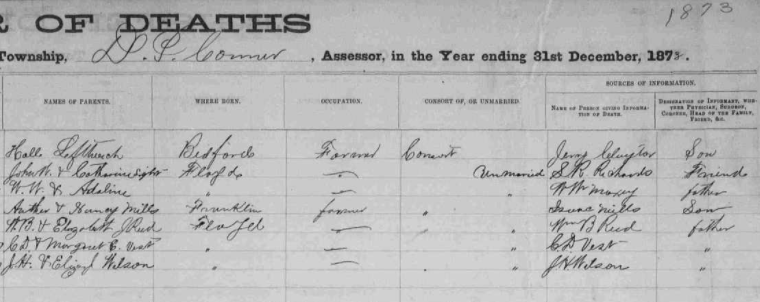 1873
R OF DEATHS
Township, D. P. Conner, Assessor, in the Year ending 31st December, 1873.
SOURCES OF INFORMATION.
NAMES OF PARENTS. WHERE BORN. OCCUPATION. CONSORT OF, OR UNMARRIED. NAME OF PERSON GIVING INFORMATION OF DEATH. DESIGNATION OF INFORMANT, WHETHER PHYSICIAN, SURGEON, CORONER, HEAD OF THE FAMILY, FRIEND, &C.
Bedford Farmer Consort Son
John W. & Catharine Floyd Unmarried S. R. Richards Friend
W. W. & Adaline " " W W Maxey father
& Nancy Mills Franklin farmer " Isaac Mills Son
W. B. & Elizabeth J Reed Floyd " Wm B Reed father
C D & Margaret E. Vest " " C D Vest "
J. H. & Wilson " " J H Wilson "